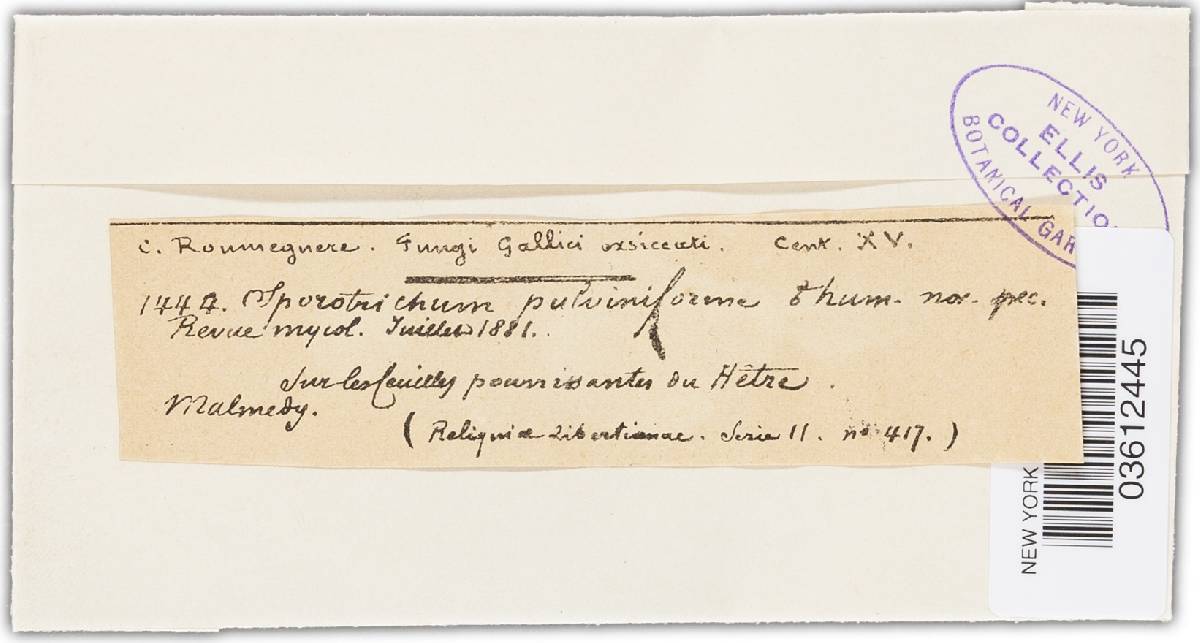 C. Roumeguere. Fungi Gallici exsiccati. Cent. XV.
1444. Sporotrichum pulviniforme Thum. nov. spec.
Revue mycol. Juillet 1881.
Sur les feuilles pourrissantes du Hêtre.
Malmedy.
(Reliquiæ Libertianae. Serie II. no 417.)
NEW YORK
ELLIS
COLLECTIO
BOTANICAL GAR
NEW YORK
03612445